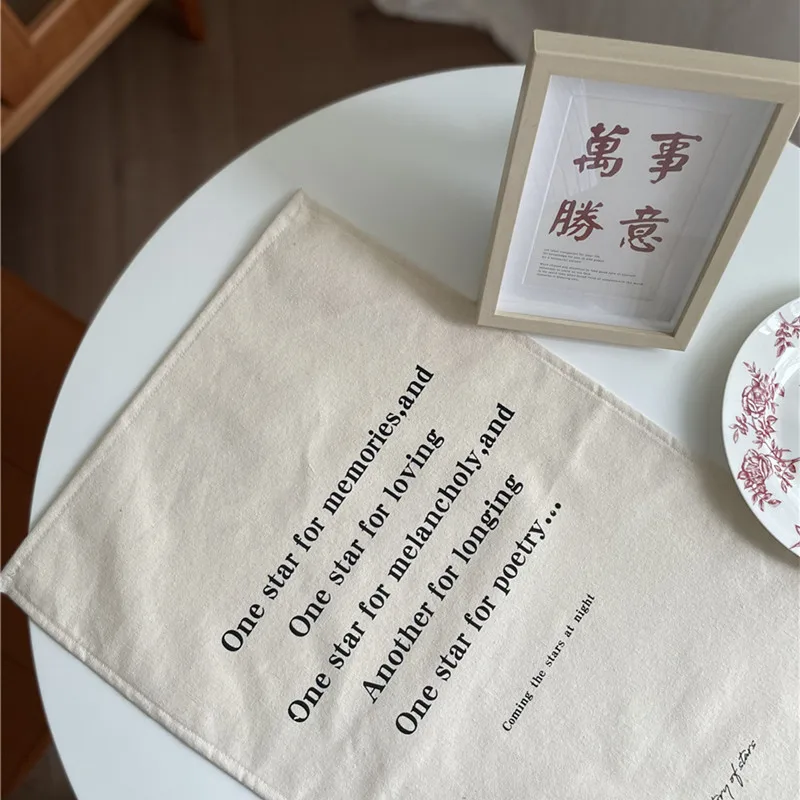 萬事
勝意
One star for memories,and
One star for loving
One star for melancholy,and
Another for longing
One star for poetry...
Coming the stars at night
of stars